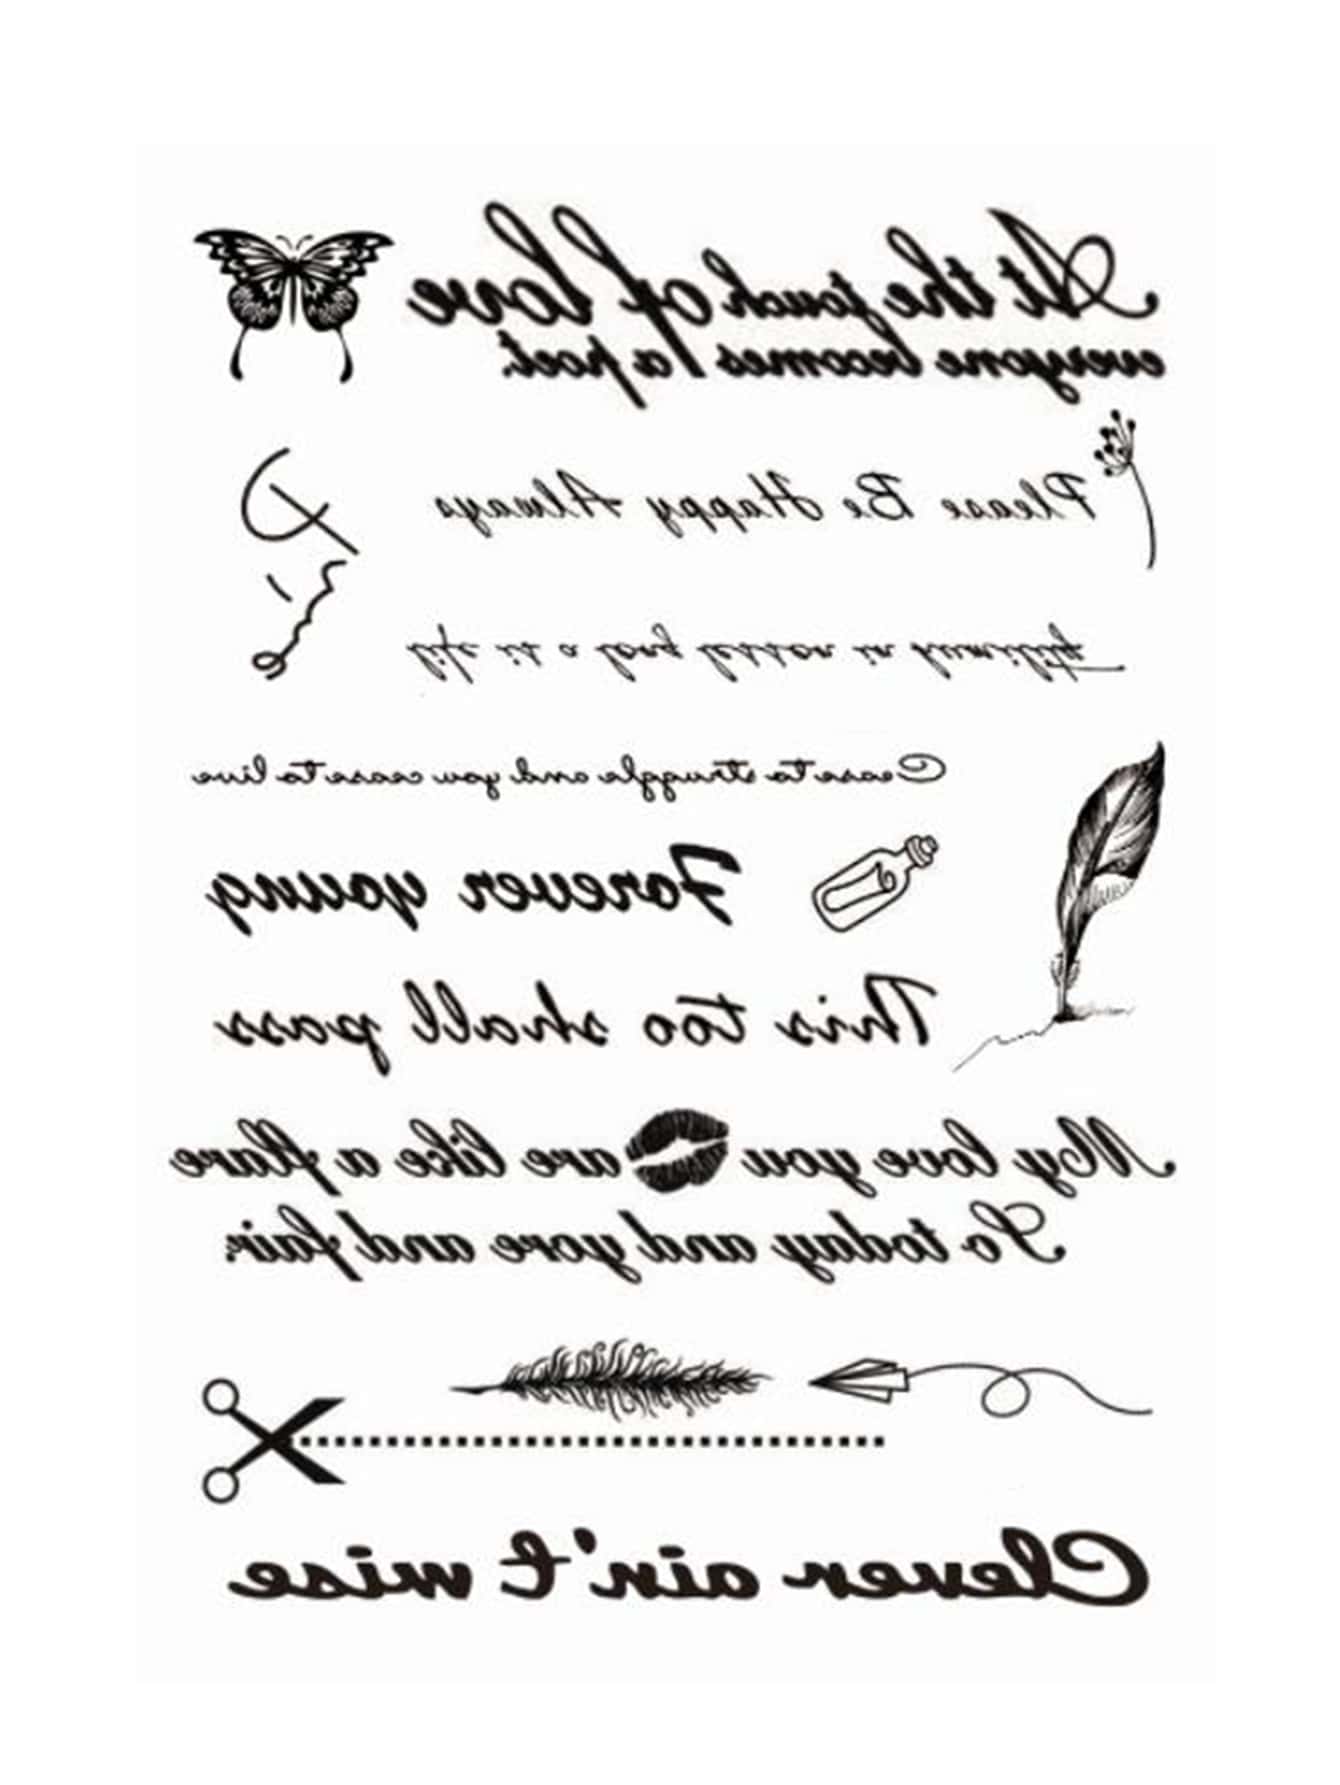 At the touch of love
everyone becomes a poet.
Please Be Happy Always
Cease to struggle and you cease to live
Forever young
This too shall pass
My love you you are like a flare
So today and yore and fair.
Clever ain't wise